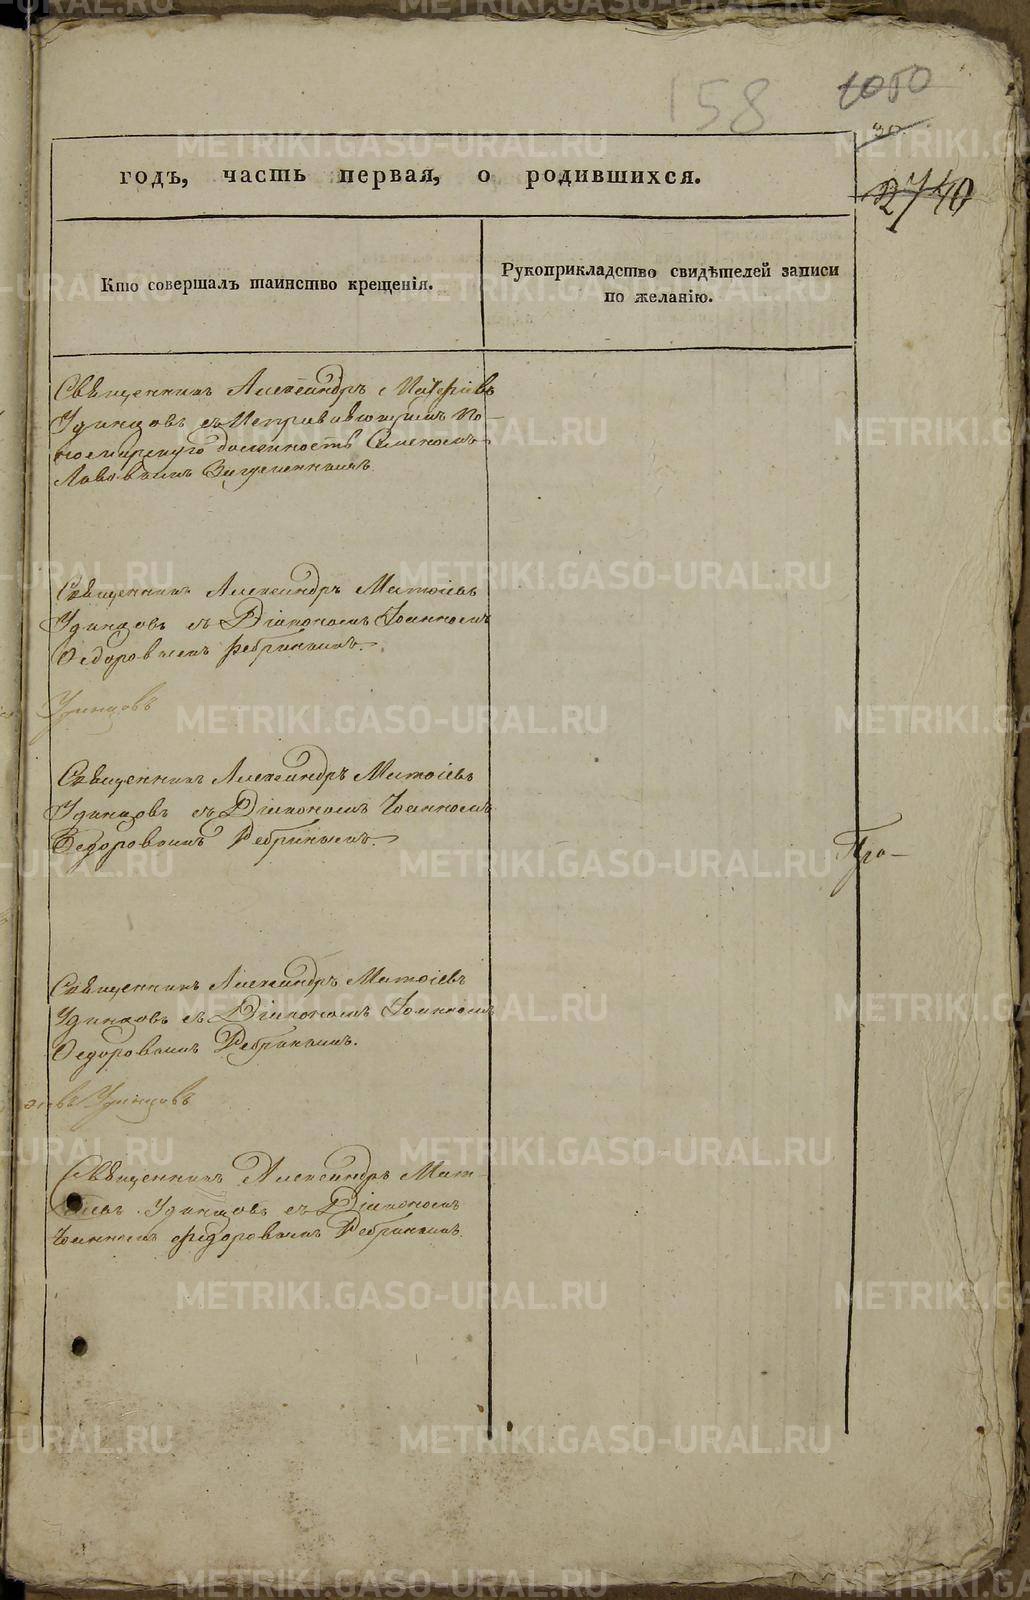 158
1050
30
2740
годъ, часть первая, о родившихся.
Кто совершалъ таинство крещенія.
Рукоприкладство свидѣтелей записи
по желанію.
Священникъ Александръ Матфіевъ
Удинцовъ съ Исправляющимъ По-
номарскую должность Симеономъ
Священникъ Александръ Матѳіевъ
Удинцовъ съ Діакономъ Іоанномъ
Ѳедоровымъ Ребринымъ.
Удинцовъ
Священникъ Александръ Матѳіевъ
Удинцовъ съ Діакономъ Іоанномъ
Ѳедоровымъ Ребринымъ.
Священникъ Александръ Матѳіевъ
Удинцовъ съ Діакономъ Іоанномъ
Ѳедоровымъ Ребринымъ.
Удинцовъ
Священникъ Александръ Мат-
ѳіевъ Удинцовъ съ Діакономъ
Іоанномъ Ѳедоровымъ Ребринымъ.
METRIKI.GASO-URAL.RU